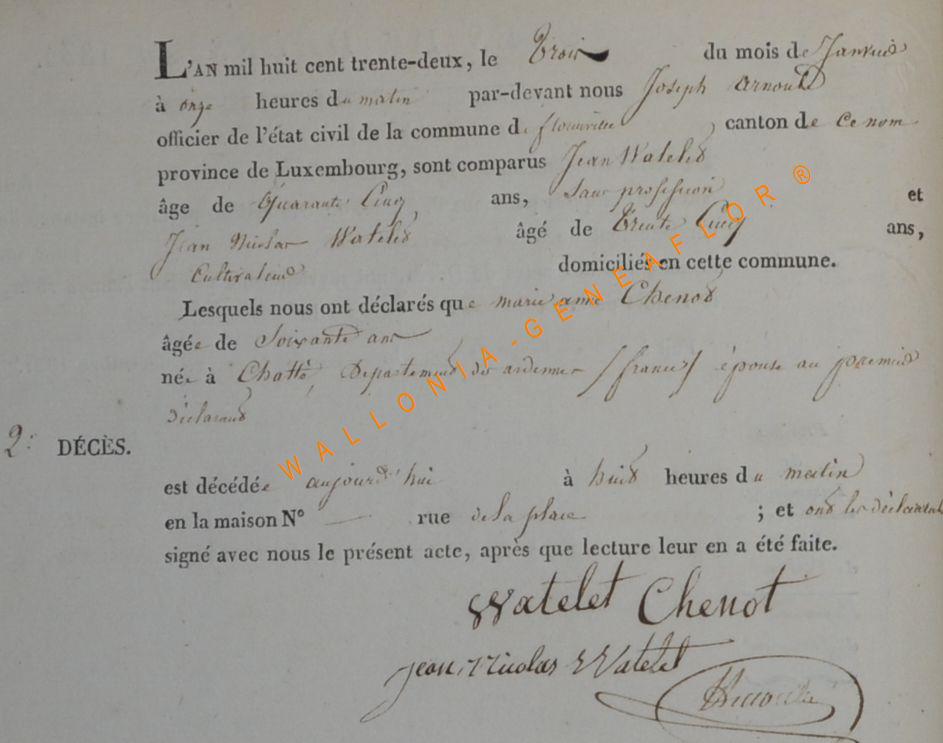 L'AN mil huit cent trente-deux, le trois du mois de Janvier
à onze heures du matin par-devant nous Joseph Arnould
officier de l'état civil de la commune de florenville canton de ce nom
province de Luxembourg, sont comparus Jean Watelet
âge de Quarante Cinq ans, sans profession et
Jean Nicolas Watelet âgé de trente Cinq ans,
Cultivateur domiciliés en cette commune.
Lesquels nous ont déclarés que marie anne Chenot
âgée de Soixante ans
née à Departement des ardennes (france) épouse au premier
déclarant
2e DÉCÈS.
est décédée aujourd'hui à huit heures du matin
en la maison N° — rue de la place ; et ont les déclarants
signé avec nous le présent acte, après que lecture leur en a été faite.
Watelet Chenot
jean Nicolas Watelet
WALLONIA-GENEAFLOR ®